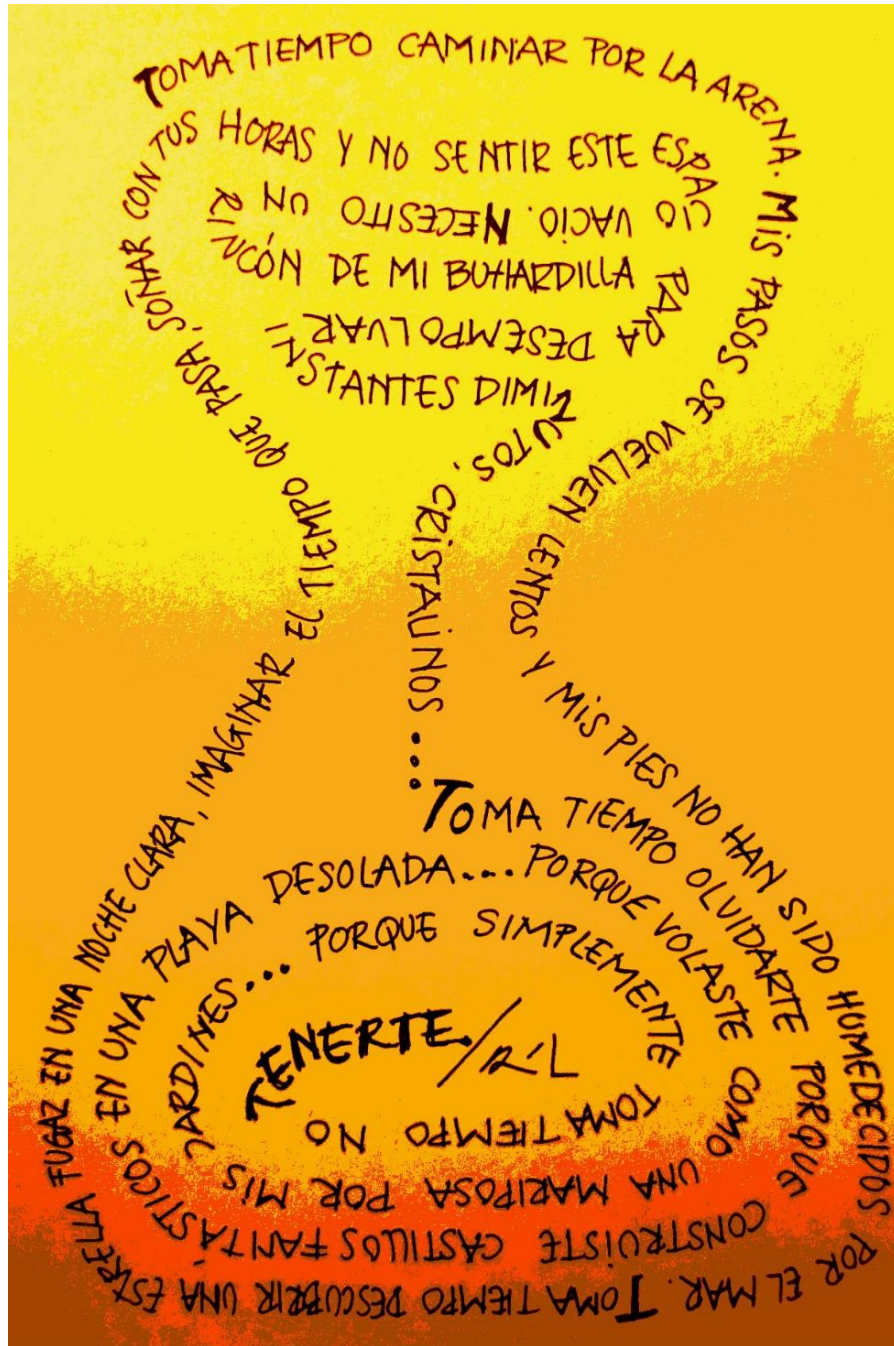 TOMA TIEMPO CAMINAR POR LA ARENA. MIS PASOS SE VUELVEN LENTOS Y MIS PIES NO HAN SIDO HUMEDECIDOS POR EL MAR. TOMA TIEMPO DESCUBRIR UNA ESTRELLA FUGAZ EN UNA NOCHE CLARA, IMAGINAR EL TIEMPO QUE PASA, SOÑAR CON TUS HORAS Y NO SENTIR ESTE ESPACIO VACIO. NECESITO UN RINCÓN DE MI BUHARDILLA PARA DESEMPOLVAR INSTANTES DIMINUTOS, CRISTALINOS...
TOMA TIEMPO OLVIDARTE PORQUE CONSTRUISTE CASTILLOS FANTÁSTICOS EN UNA PLAYA DESOLADA... PORQUE VOLASTE COMO UNA MARIPOSA POR MIS JARDINES... PORQUE SIMPLEMENTE TOMA TIEMPO NO TENERTE.